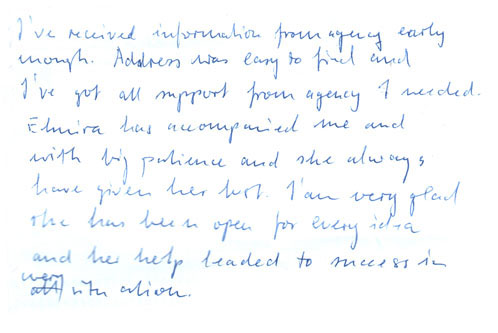 I've received information from agency early
enough. Address was easy to find and
I've got all support from agency I needed.
Elmira has accompanied me and
with big patience and she always
have given her best. I'am very glad
she has been open for every idea
and her help leaded to success in
every situation.